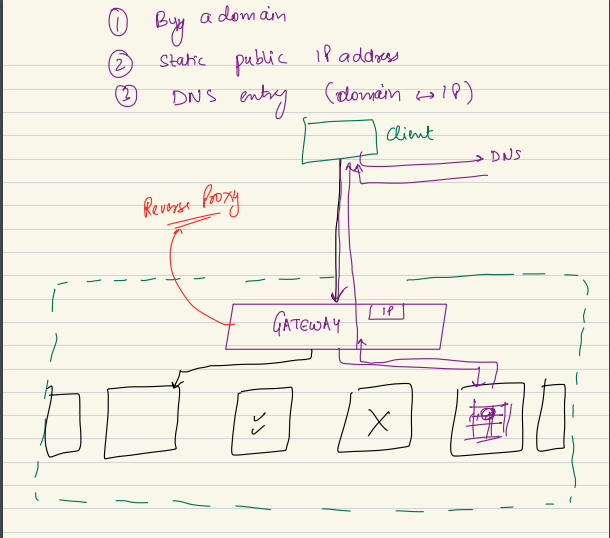 ① Buy a domain
② Static public IP address
③ DNS entry (domain ↔ IP)
Client
DNS
Reverse Proxy
IP
GATEWAY